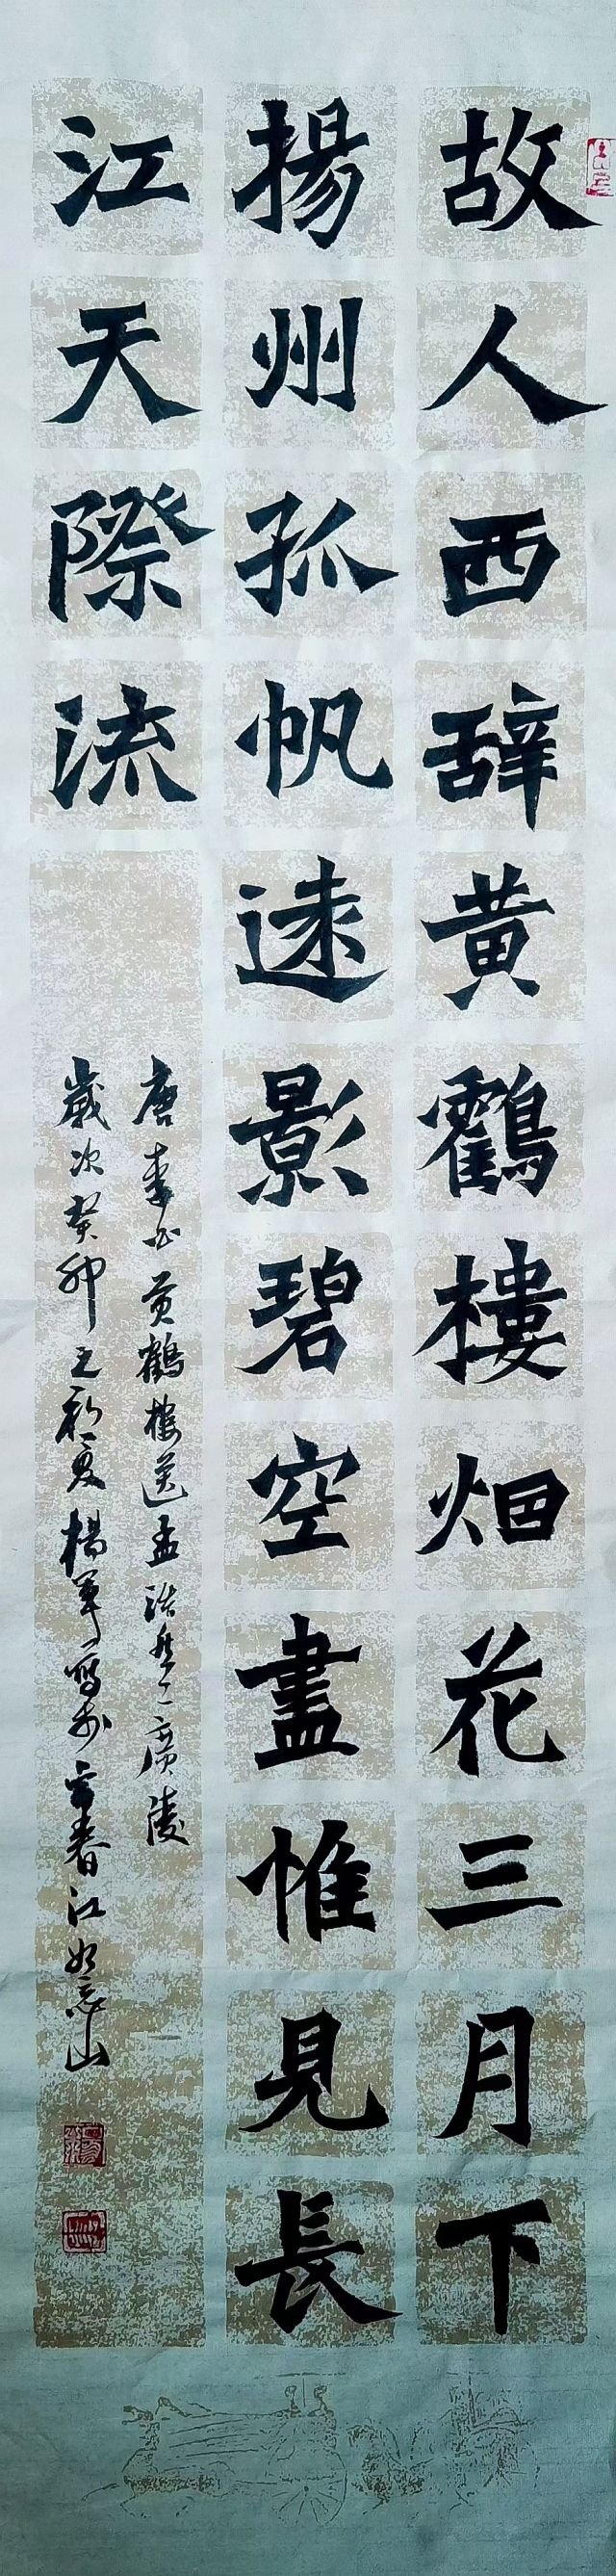 故人西辞黄鸖樓烟花三月下
揚州孤帆逺影碧空盡惟見長
江天際流
唐李白黄鶴樓送孟浩然之廣陵
歲次癸卯之初夏楊軍寫於富春江如意山